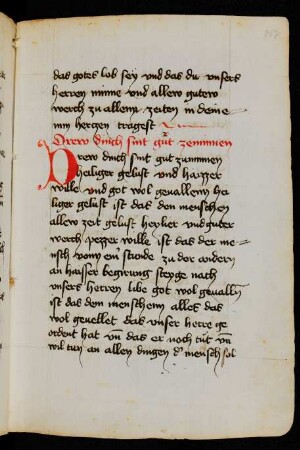 das gotes lob sey vnd das du vnsers
herren minne vnd allew gutew
werch zu allenn zeiten in deine
nm herczen tragest
Drew dinch sint gut zenemmen
Drew dinch sint gut zunemen
heiliger gelust vnd haysser
wille vnd got wol geuallenn hei
liger gelust ist das den menschen
allew zeit gelust heyliger vnd guter
werch heysser wille ist das der me
nsch vonn einer stunde zu der andern
an haisser begirung steyge nach
vnsers herren libe got wol geuallenn
ist das dem menschenn alles das
wol geuellet das vnser herre ge
ordent hat vnd das er noch tut vnd
wil tun an allen dingen der mensch sol